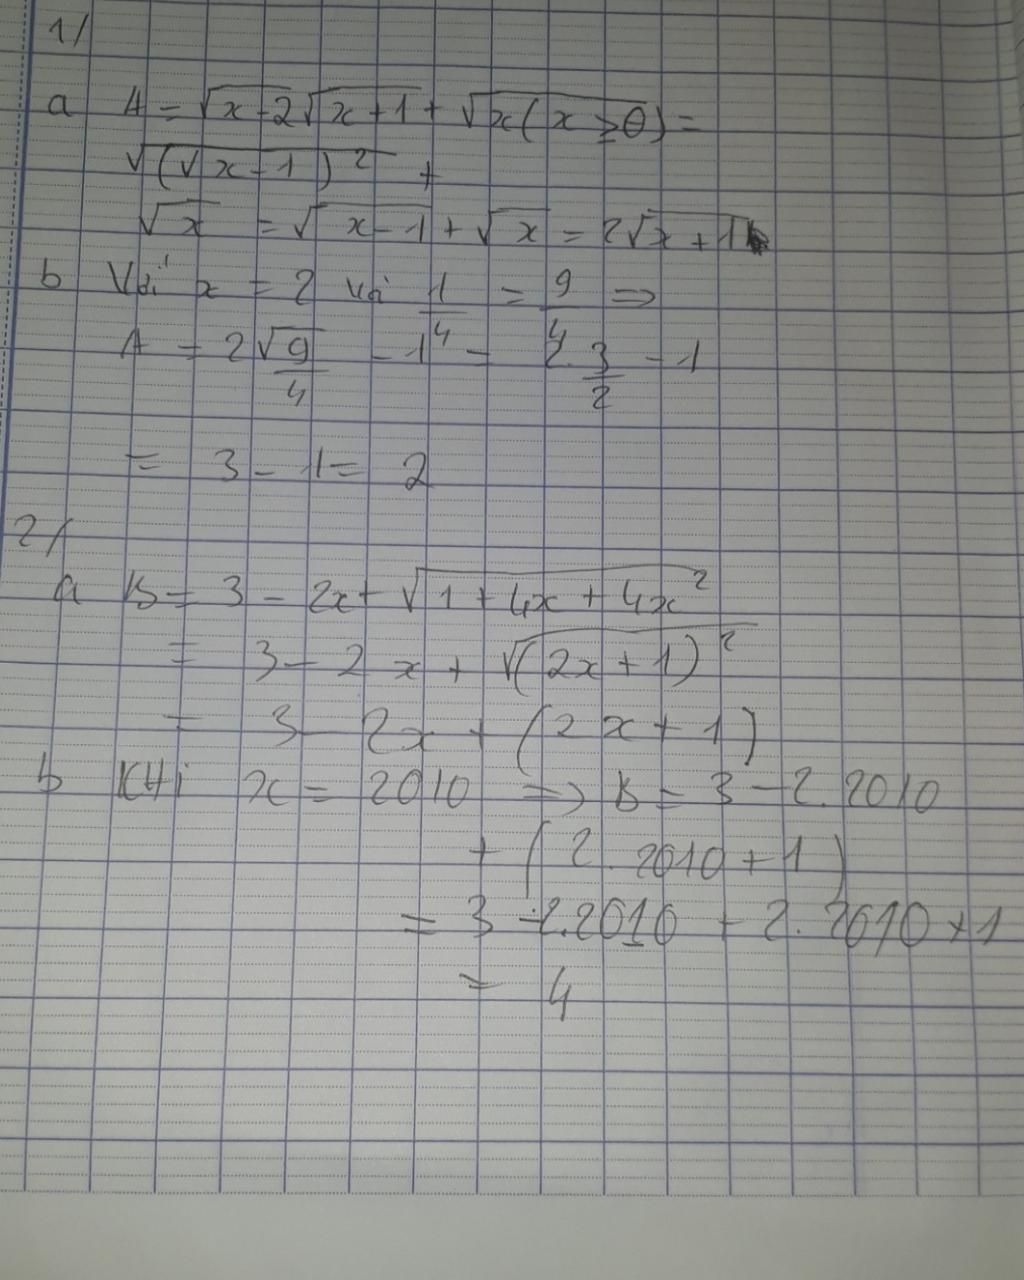 1/
a A = √x-2√x+1 + √x(x ≥0) =
√(√x-1)² +
√x = √x-1 + √x = 2√x+1
b Với x = 2 với 1/4 = 9/4 =>
A = 2√9/4 - 1 = 2.3/2 - 1
= 3 - 1 = 2
2/
a B = 3 - 2x + √1 + 4x + 4x²
= 3 - 2x + √(2x+1)²
= 3 - 2x + (2x + 1)
b KHi x = 2010 => B = 3 - 2.2010
+ (2.2010 + 1)
= 3 - 2.2010 + 2.2010 + 1
= 4